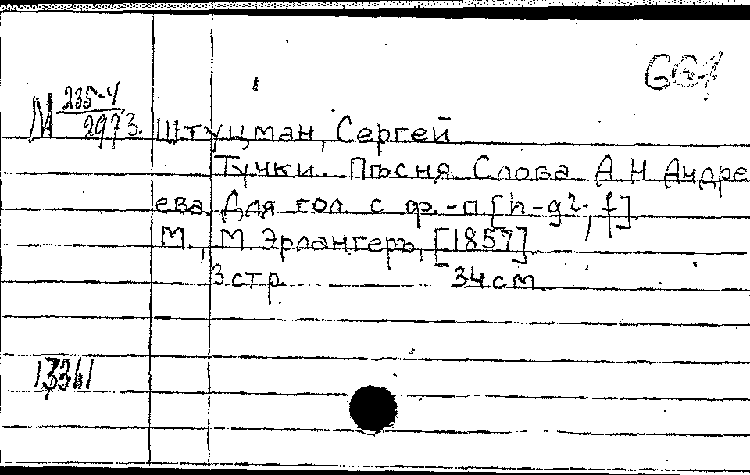 М 235-4
2973. Штуцман, Сергей
Тучки. Пѣсня. Слова А. Н. Андре
ева. Для гол. с ф.-п. [h-g²; f]
М., М. Эрлангеръ, [1857]
3 стр. 34 см
13361